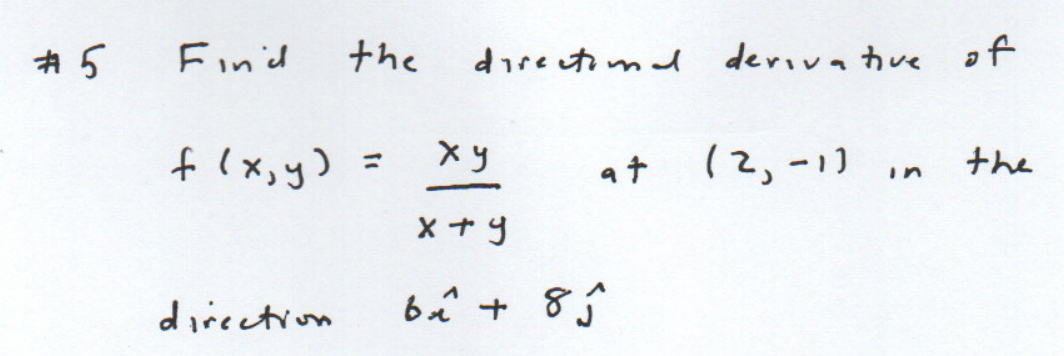 #5 Find the directional derivative of
f(x,y) = xy / x+y at (2,-1) in the
direction 6î + 8ĵ